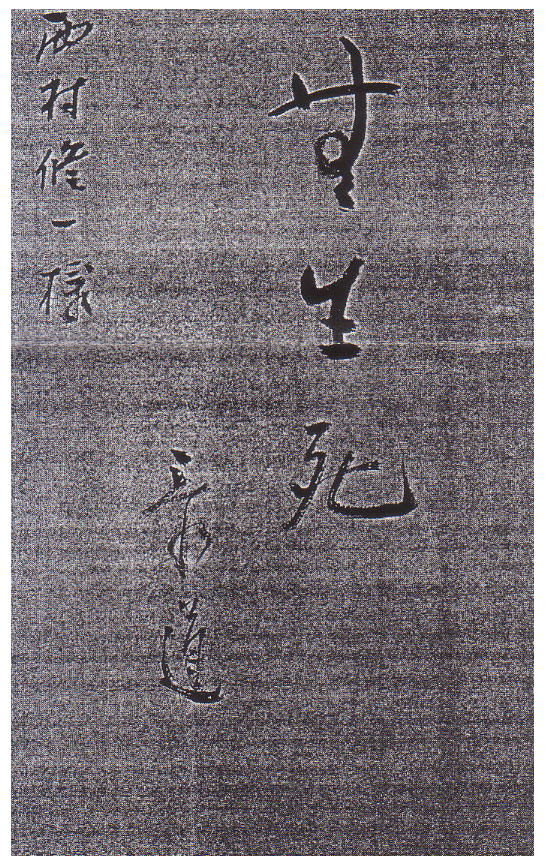 無生死
道
西村修一様